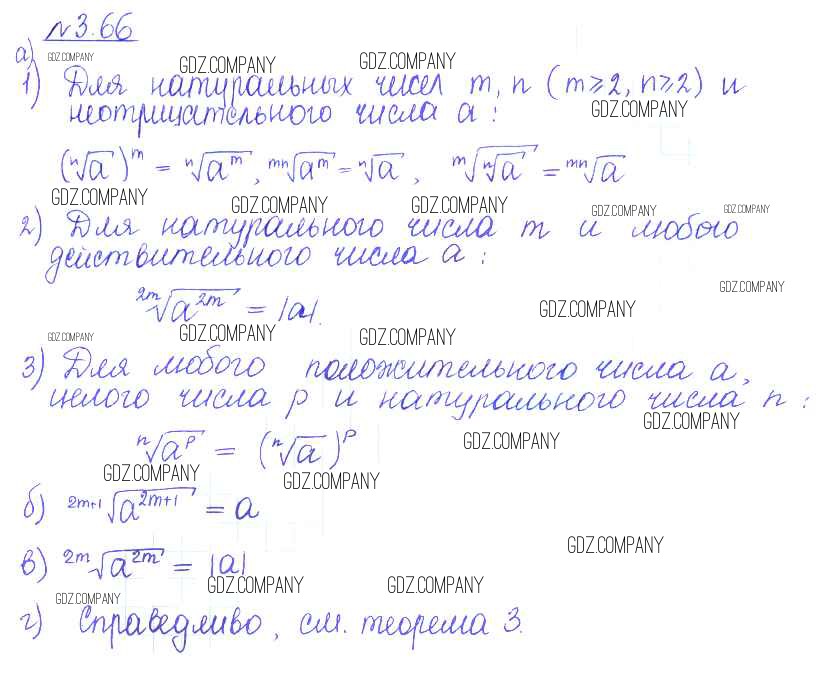 №3.66
а) GDZ.COMPANY GDZ.COMPANY GDZ.COMPANY
1) Для натуральных чисел m, n (m⩾2, n⩾2) и
неотрицательного числа а: GDZ.COMPANY
(ⁿ√a)ᵐ = ⁿ√aᵐ, ᵐⁿ√aᵐ = ⁿ√a, ᵐ√ⁿ√a = ᵐⁿ√a
GDZ.COMPANY GDZ.COMPANY GDZ.COMPANY GDZ.COMPANY GDZ.COMPANY
2) Для натурального числа m и любого
действительного числа а:
GDZ.COMPANY
²ᵐ√a²ᵐ = |a|. GDZ.COMPANY
GDZ.COMPANY GDZ.COMPANY GDZ.COMPANY
3) Для любого положительного числа а,
целого числа p и натурального числа n:
GDZ.COMPANY
ⁿ√aᵖ = (ⁿ√a)ᵖ GDZ.COMPANY
GDZ.COMPANY GDZ.COMPANY
б) ²ᵐ⁺¹√a²ᵐ⁺¹ = a
GDZ.COMPANY
в) ²ᵐ√a²ᵐ = |a|
GDZ.COMPANY GDZ.COMPANY
GDZ.COMPANY
г) Справедливо, см. теорема 3.